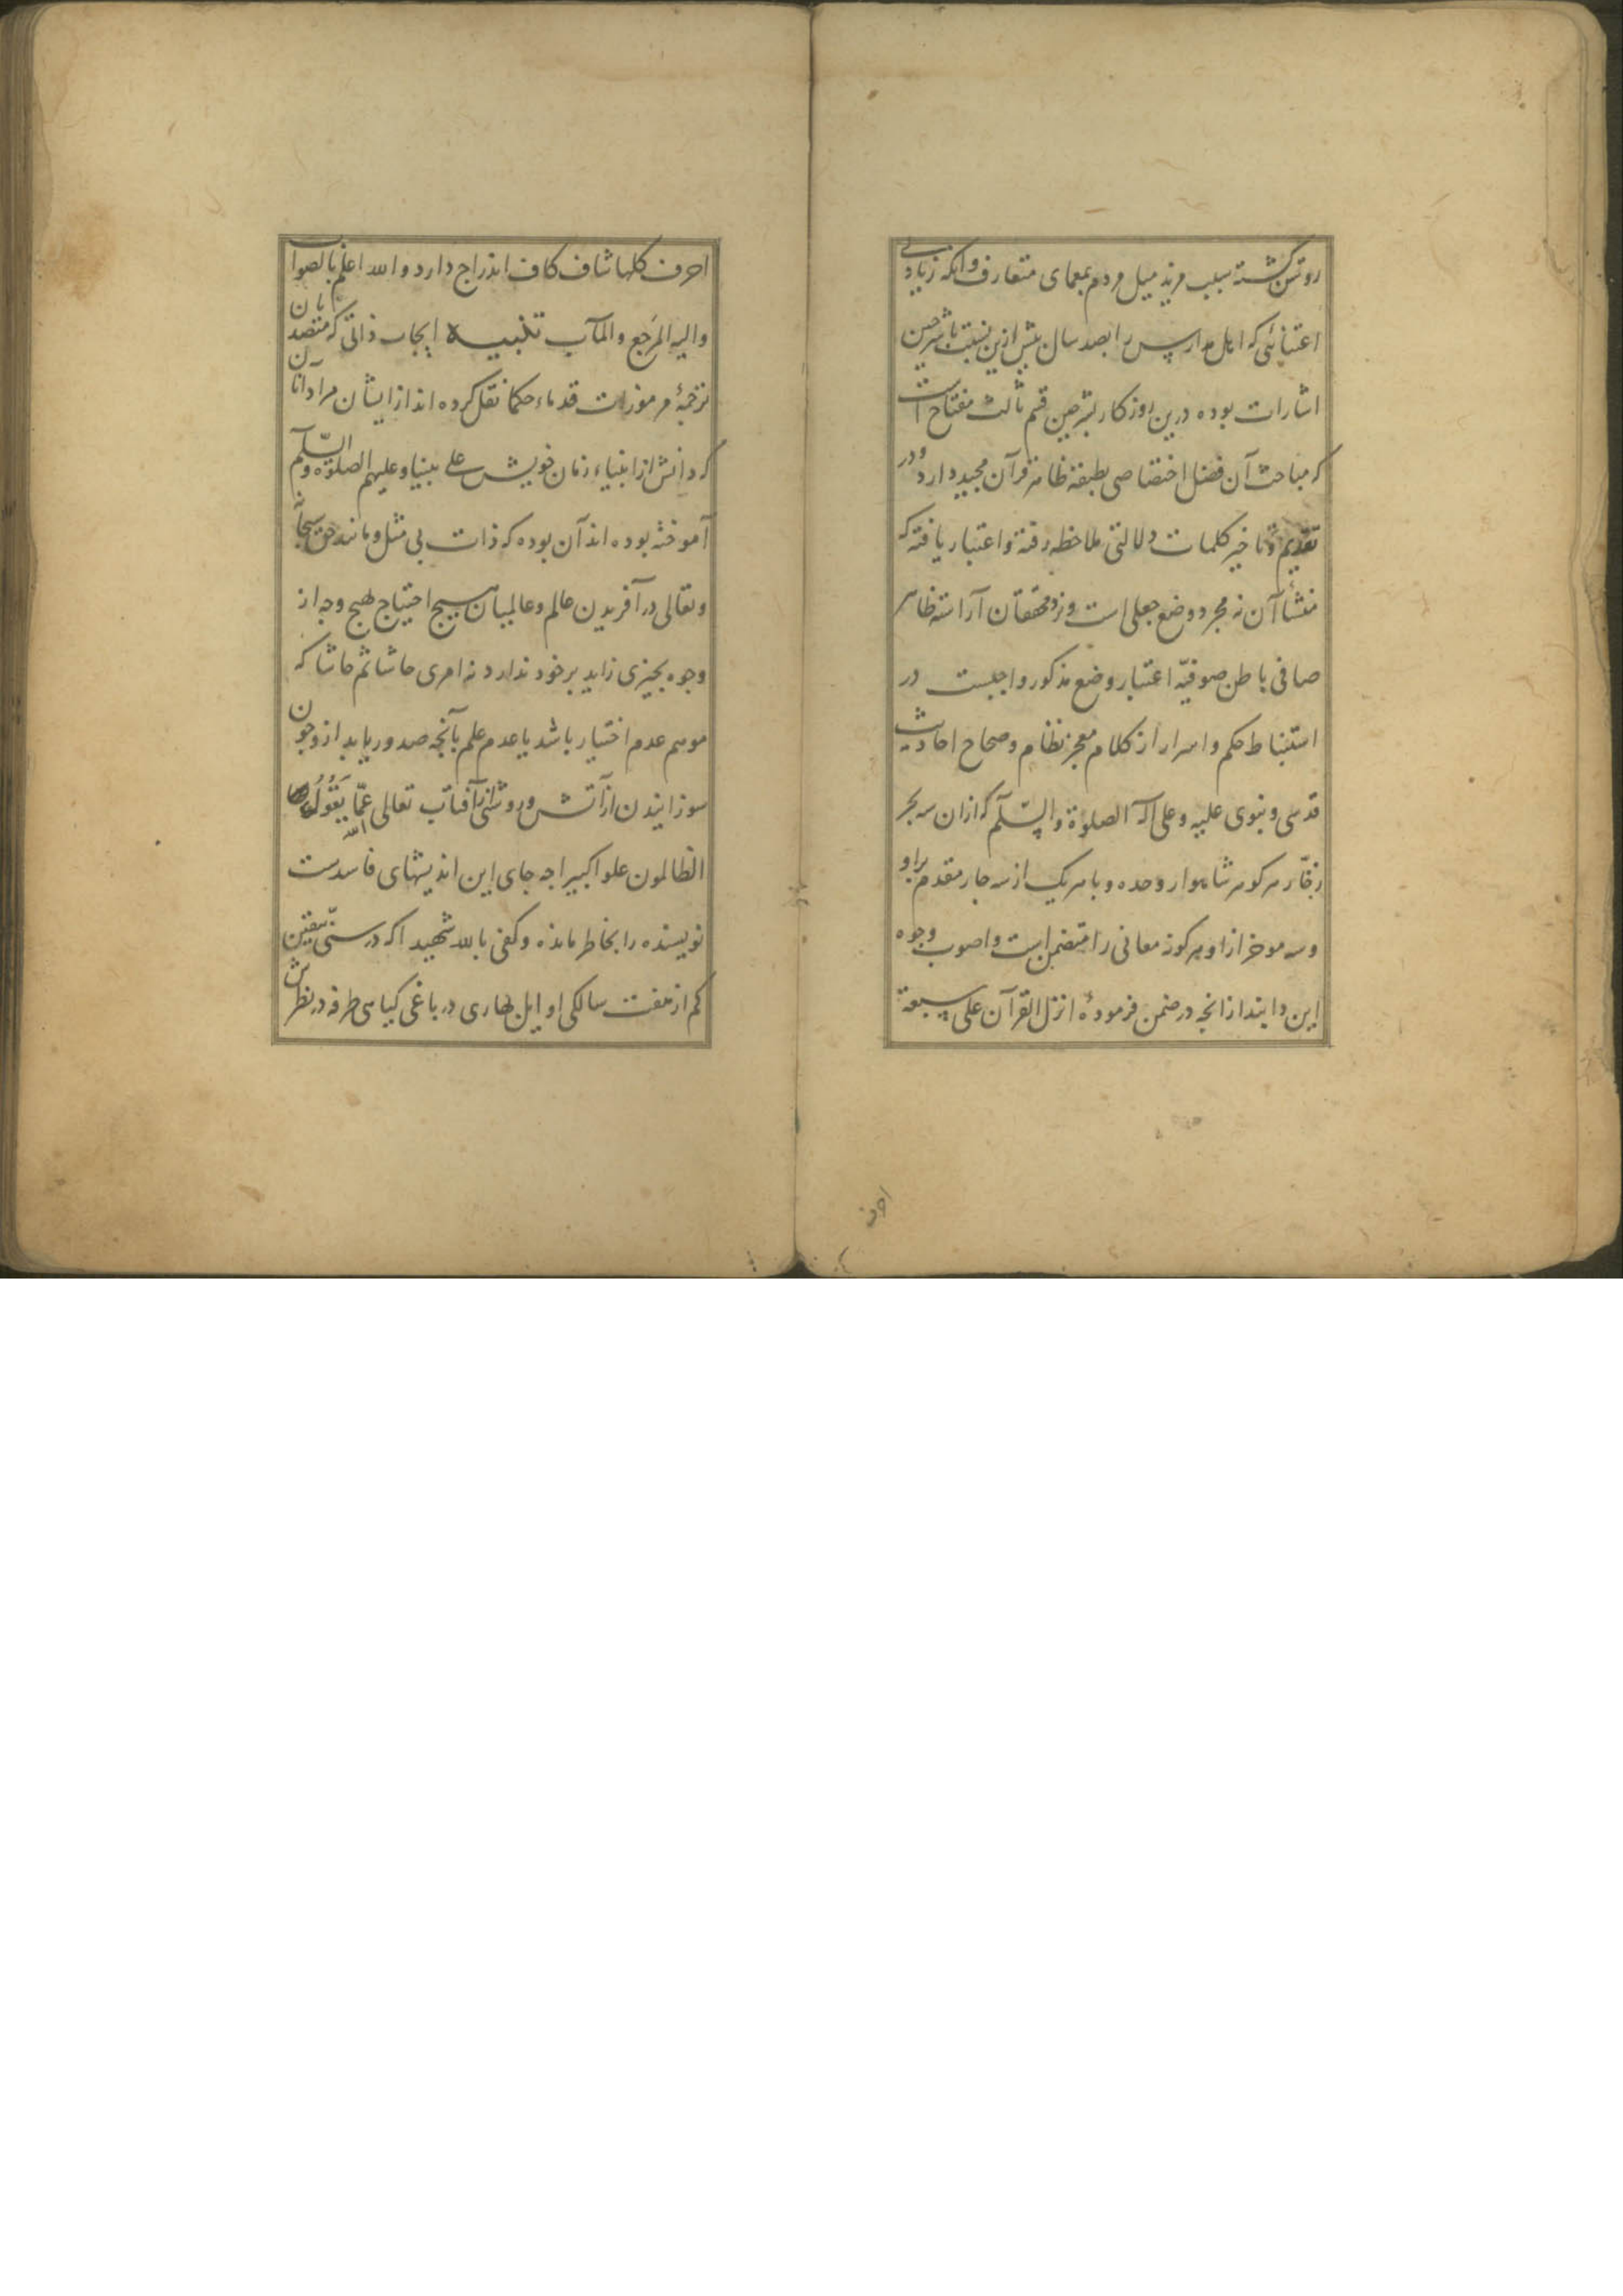 روشن گشته بسبب مزید میل مردم بمعمای متعارف وانکه زیادتی
اعتنائی که اهل مدارس را بصد سال پیش ازین نسبت با شرحین
اشارات بوده درین روزکار بشرحین قسم ثالث مفتاح است
که مباحث آن فضل اختصاصی بطبقه ظاهر قرآن مجید دارد و در
تقدیم و تاخیر کلمات دلالتی ملاحظه رفته و اعتبار یافته که
منشأ آن نه مجرد وضع جعلی است و نزد محققان آراسته ظاهر
صافی باطن صوفیّه اعتبار وضع مذکور واجبست در
استنباط حکم و اسرار از کلام معجز نظام و صحاح احادیث
قدسی و نبوی علیه و علی آله الصلوة والسّلم که ازان سه بحر
زخّار هر کوهر شاهوار وحده و با هر یک از سه جار مقدم بر او
و سه موخر ازو هر کونه معانی را متضمن است و اصوب وجوه
این دانند ازانچه در ضمن فرمودهٔ انزل القرآن علی سبعة
احرف
احرف کلها شاف کاف اندراج دارد والله اعلم بالصواب
والیه المرجع والمآب تنبیه ایجاب ذاتی که متصدیان
ترجمهٔ مرموزات قدماء حکما نقل کرده اند از ایشان مراد انان
که دانش از انبیاء زمان خویش علی نبینا وعلیهم الصلوة والسّلم
آموخته بوده اند آن بوده که ذات بی مثل و مانند حق سبحانه
وتعالی در آفریدن عالم و عالمیان هیچ احتیاج بهیچ وجه از
وجوه بچیزی زاید بر خود ندارد نه امری حاشا ثم حاشا که
موهم عدم اختیار باشد یا عدم علم بآنچه صدور یابد ازو چون
سوزانیدن از آتش و روشنی از آفتاب تعالی الله عمّا یَقُولُ
الظالمون علوا کبیرا چه جای این اندیشهای فاسدست
نویسنده را بخاطر مانده وکفی بالله شهیدا که در سنّ یقین
کم از هفت سالکی اوایل بهاری در باغی کیاهی طرفه در نظرش